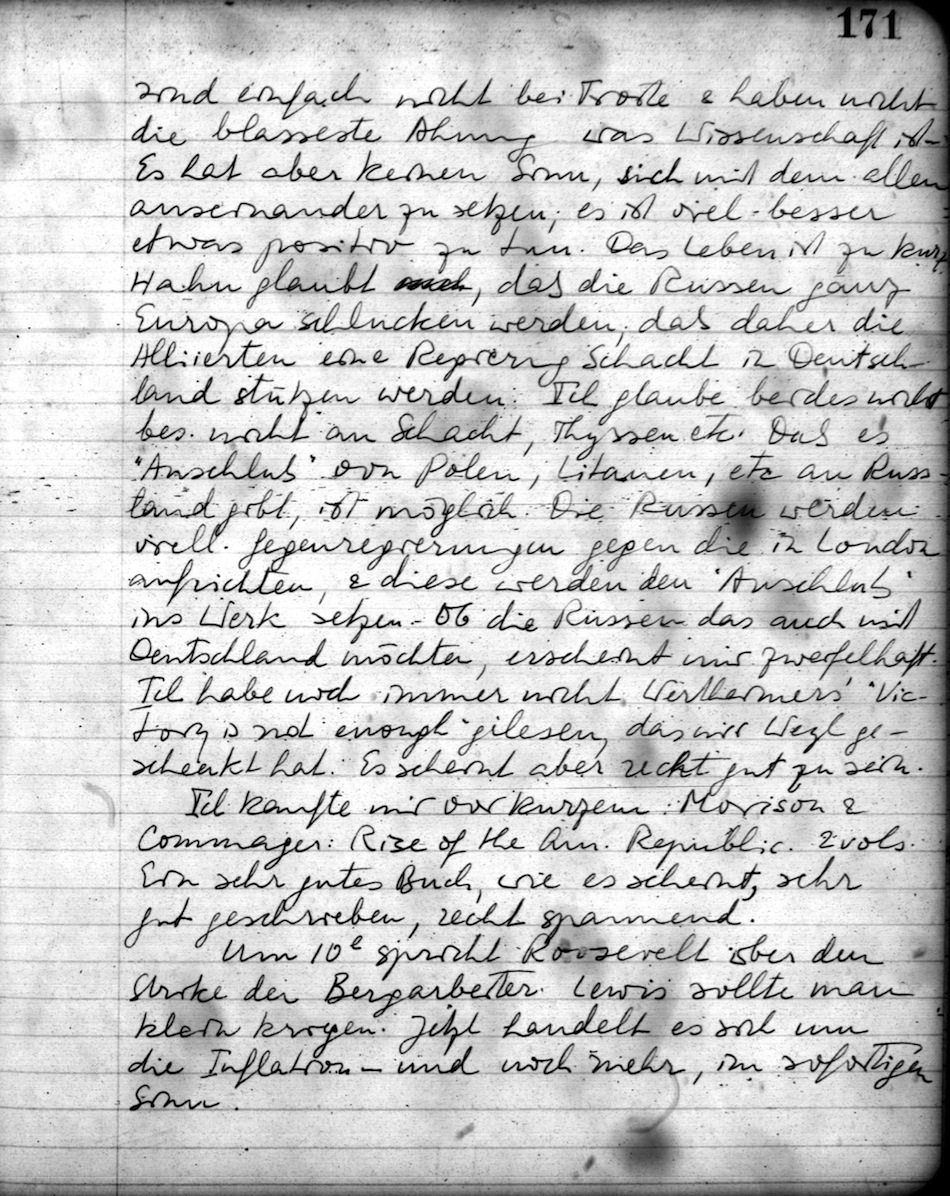 171
sind einfach nicht bei Troste & haben nicht
die blasseste Ahnung was Wissenschaft ist –
Es hat aber keinen Sinn, sich mit dem allen
auseinander zu setzen; es ist viel besser
etwas positiv zu tun. Das Leben ist zu kurz
Hahn glaubt, daß die Russen ganz
Europa schlucken werden, daß daher die
Alliierten eine Regierung Schacht in Deutsch-
land stützen werden. Ich glaube beides nicht
bes. nicht an Schacht, Thyssen etc. Daß es
"Anschluß" von Polen, Litauen, etc an Russ-
land gibt, ist möglich. Die Russen werden
viell. Gegenregierungen gegen die in London
aufrichten, & diese werden den "Anschluß"
ins Werk setzen – Ob die Russen das auch mit
Deutschland möchten, erscheint mir zweifelhaft.
Ich habe noch immer nicht Wertheimers' "Vic-
tory is not enough" gelesen, das mir Weyl ge-
schenkt hat. Es scheint aber recht gut zu sein.
Ich kaufte mir vor kurzem: Morison &
Commager: Rise of the Am. Republic. 2 vols.
Ein sehr gutes Buch, wie es scheint, sehr
gut geschrieben, recht spannend.
Um 10 spricht Roosevelt über den
Strike der Bergarbeiter. Lewis sollte man
klein kriegen. Jetzt handelt es sich um
die Inflation – und noch mehr, im sofortigen
Sinn.